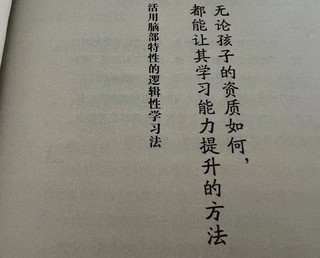 无论孩子的资质如何，
都能让其学习能力提升的方法
活用脑部特性的逻辑性学习法